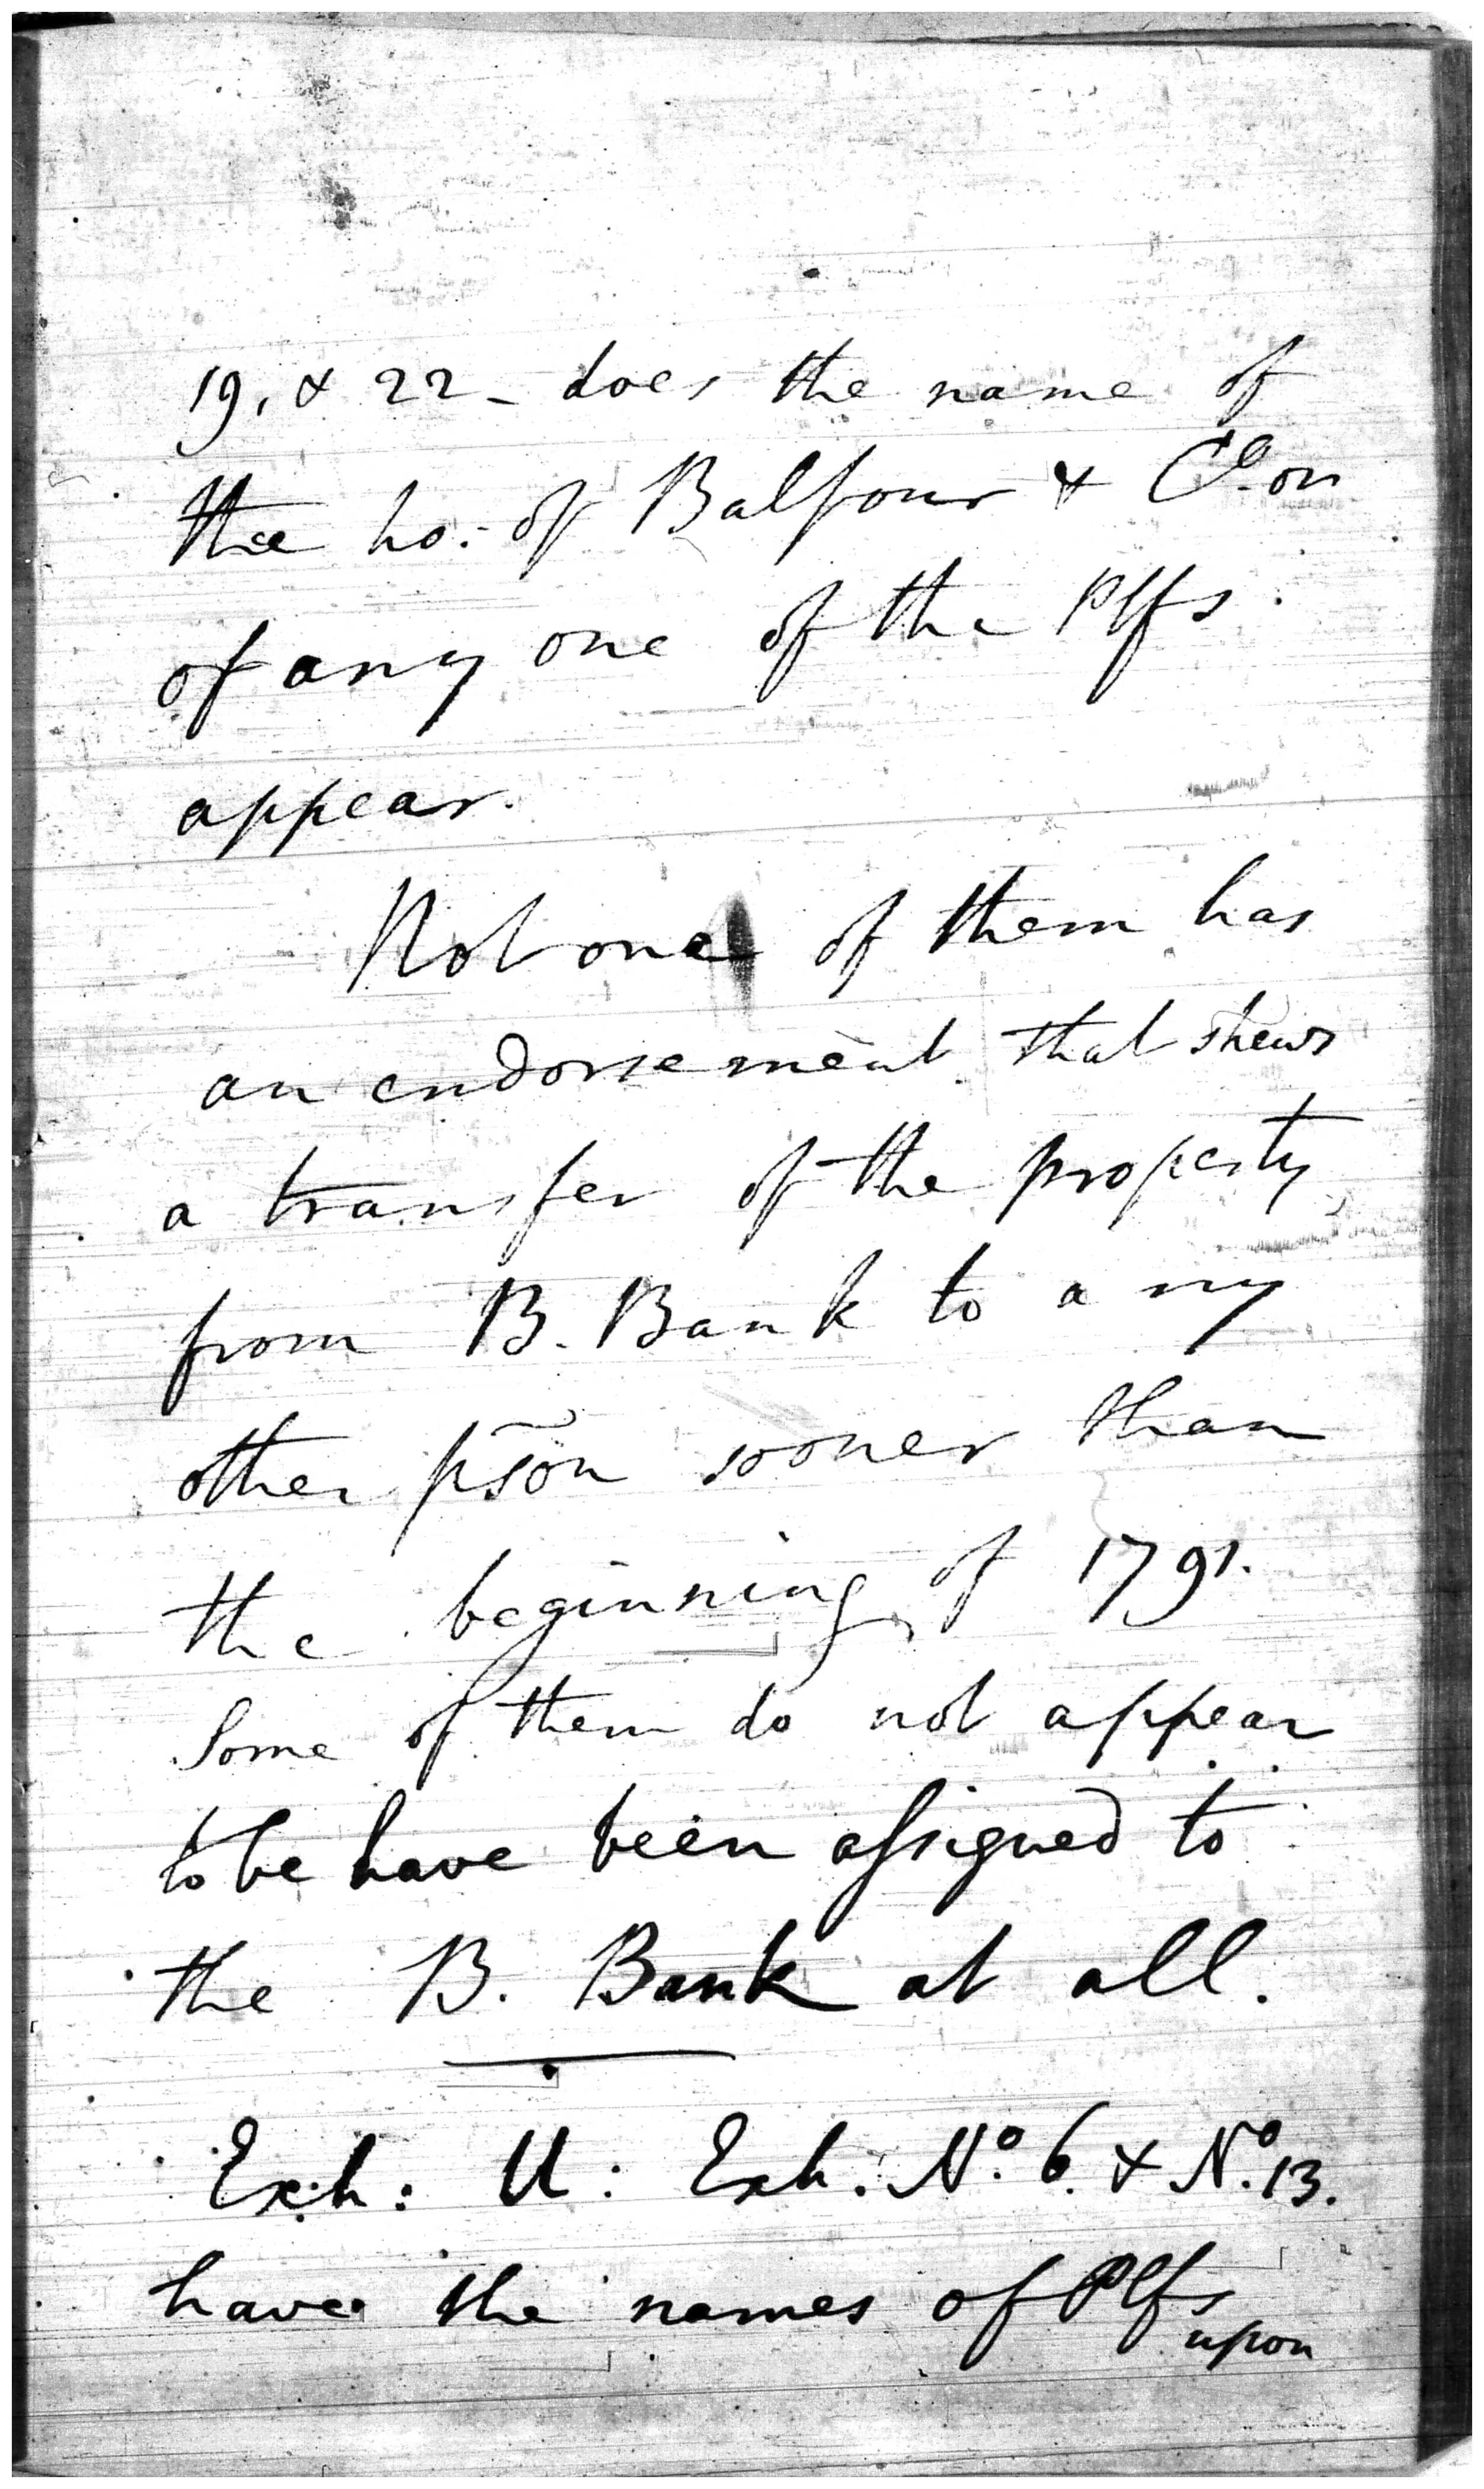 19, & 22 - does the name of
the ho: of Balfour & Co. on
of any one of the Plfs.
appear.
Not one of them has
an endorsement that shews
a transfer of the property
from B. Bank to any
other p̃son sooner than
the beginning of 1791.
Some of them do not appear
to be have been assigned to
the B. Bank at all.
Exh: U: Exh. No. 6. & No. 13.
have the names of Plfs
upon